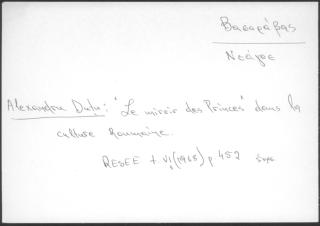 Βασαράβας
Νεάγοε
Alexandru Duțu: "Le miroir des Princes" dans la
culture Roumaine.
RESEE t. VI (1968) p. 452